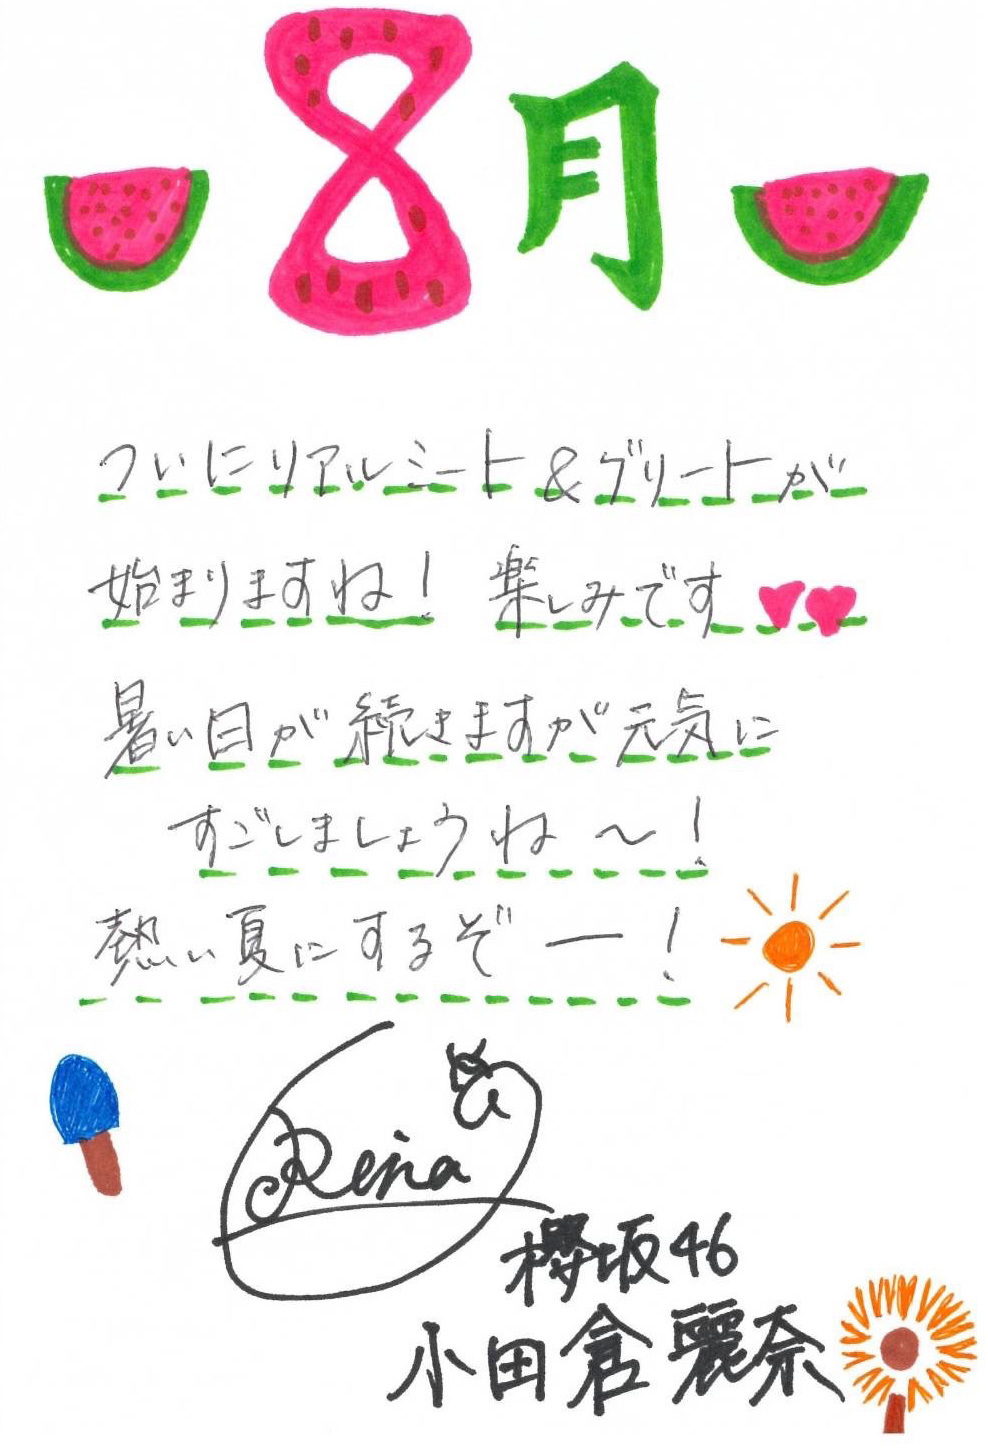 8月
ついにリアルミート&グリートが
始まりますね！ 楽しみです
暑い日が続きますが元気に
すごしましょうね〜！
熱い夏にするぞー！
Rena
櫻坂46
小田倉麗奈